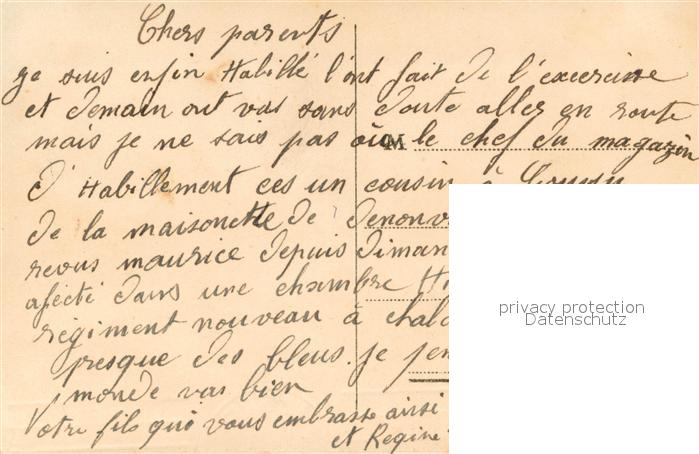 Chers parents
je suis enfin Habillé l'ont fait de l'excercisse
et demain ont vas sans doute aller en route
mais je ne sais pas où le chef du magazin
d'Habillement ces un cousin à
de la maisonette de
revus maurice depuis diman
afecté dans une chambre
régiment nouveau à chal
presque des bleus. je
monde vas bien
Votre fils qui vous embrasse ainsi
et Regine
privacy protection
Datenschutz